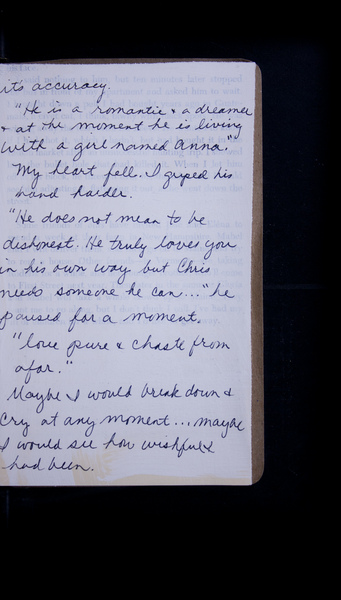 its accuracy.
"He is a romantic & a dreamer
& at the moment he is living
with a girl named Anna."
My heart fell. I griped his
hand harder.
"He does not mean to be
dishonest. He truly loves you
in his own way but Chris
needs someone he can..." he
paused for a moment.
"love pure & chaste from
afar."
Maybe I would break down &
cry at any moment...maybe
I would see how wishful I
had been.